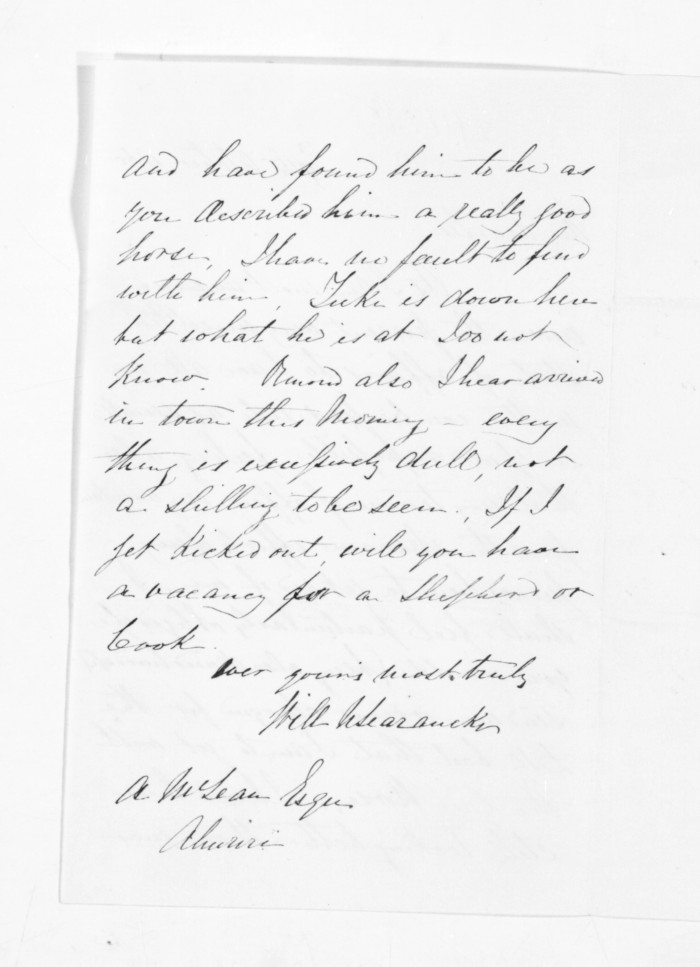 and have found him to be as
you described him a really good
horse, I have no fault to find
with him. Tuke is down here
but what he is at I do not
know. Ormond also I hear arrived
in town this Morning - every
thing is excessively dull, not
a shilling to be seen. If I
get Kicked out, will you have
a vacancy for a Shepherd or
Cook.
Ever yours most truly
Will Searancke
A McLean Esqre
Ahuriri